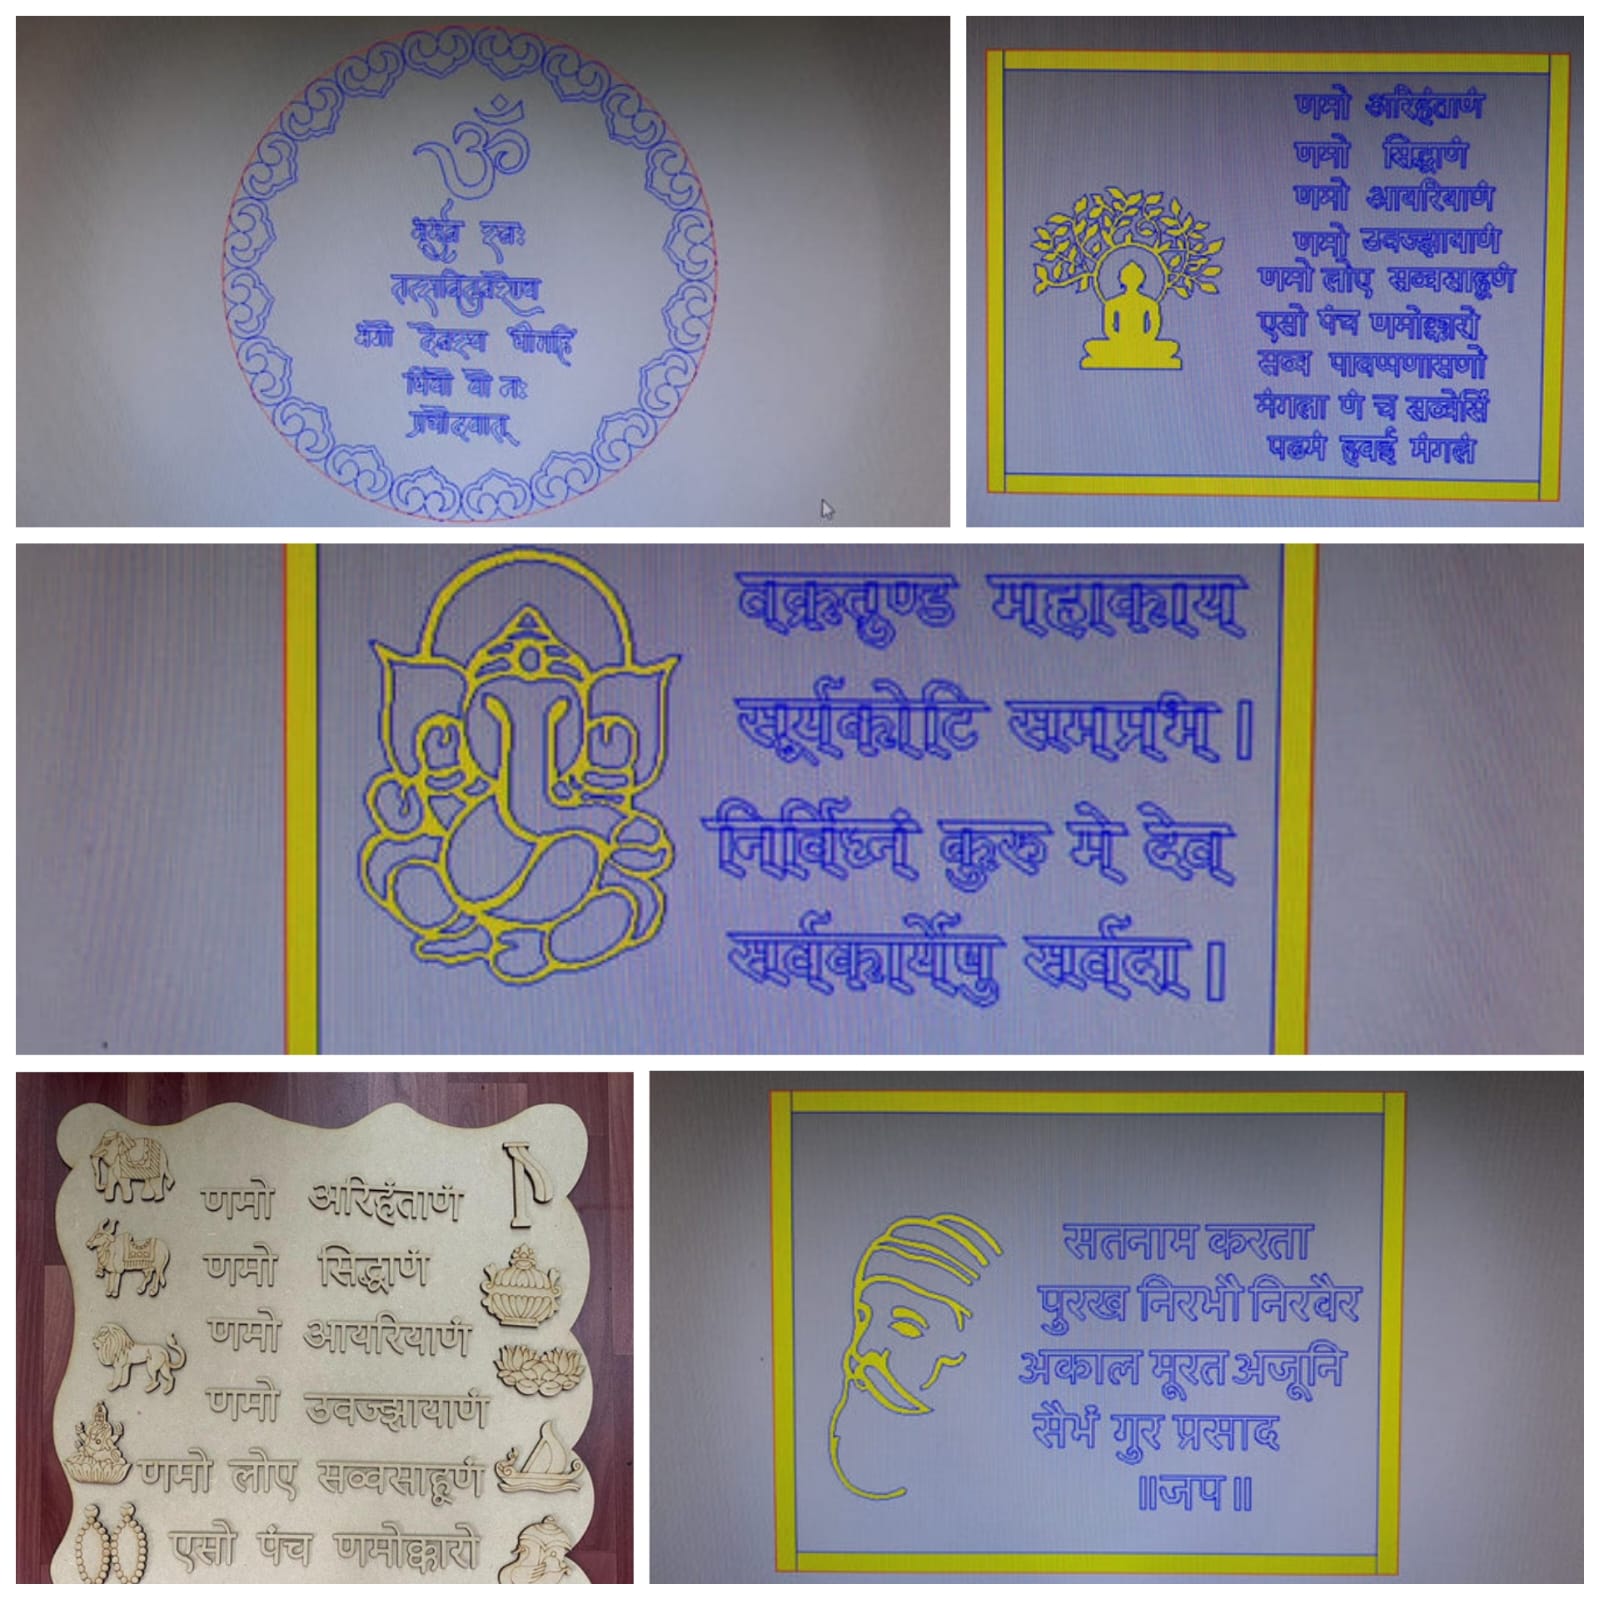 ॐ
भूर्भुव स्वः
तत्सवितुर्वरेण्य
भर्गो देवस्य धीमहि
धियो यो नः
प्रचोदयात्
णमो अरिहंताणं
णमो सिद्धाणं
णमो आयरियाणं
णमो उवज्झायाणं
णमो लोए सव्वसाहूणं
एसो पंच णमोक्कारो
सव्व पावप्पणासणो
मंगला णं च सव्वेसिं
पढमं हवई मंगलं
वक्रतुण्ड महाकाय
सूर्यकोटि समप्रभ।
निर्विघ्नं कुरु मे देव
सर्वकार्येषु सर्वदा।
णमो अरिहंताणं
णमो सिद्धाणं
णमो आयरियाणं
णमो उवज्झायाणं
णमो लोए सव्वसाहूणं
एसो पंच णमोक्कारो
सतनाम करता
पुरख निरभौ निरवैर
अकाल मूरत अजूनि
सैभं गुर प्रसाद
॥जप॥